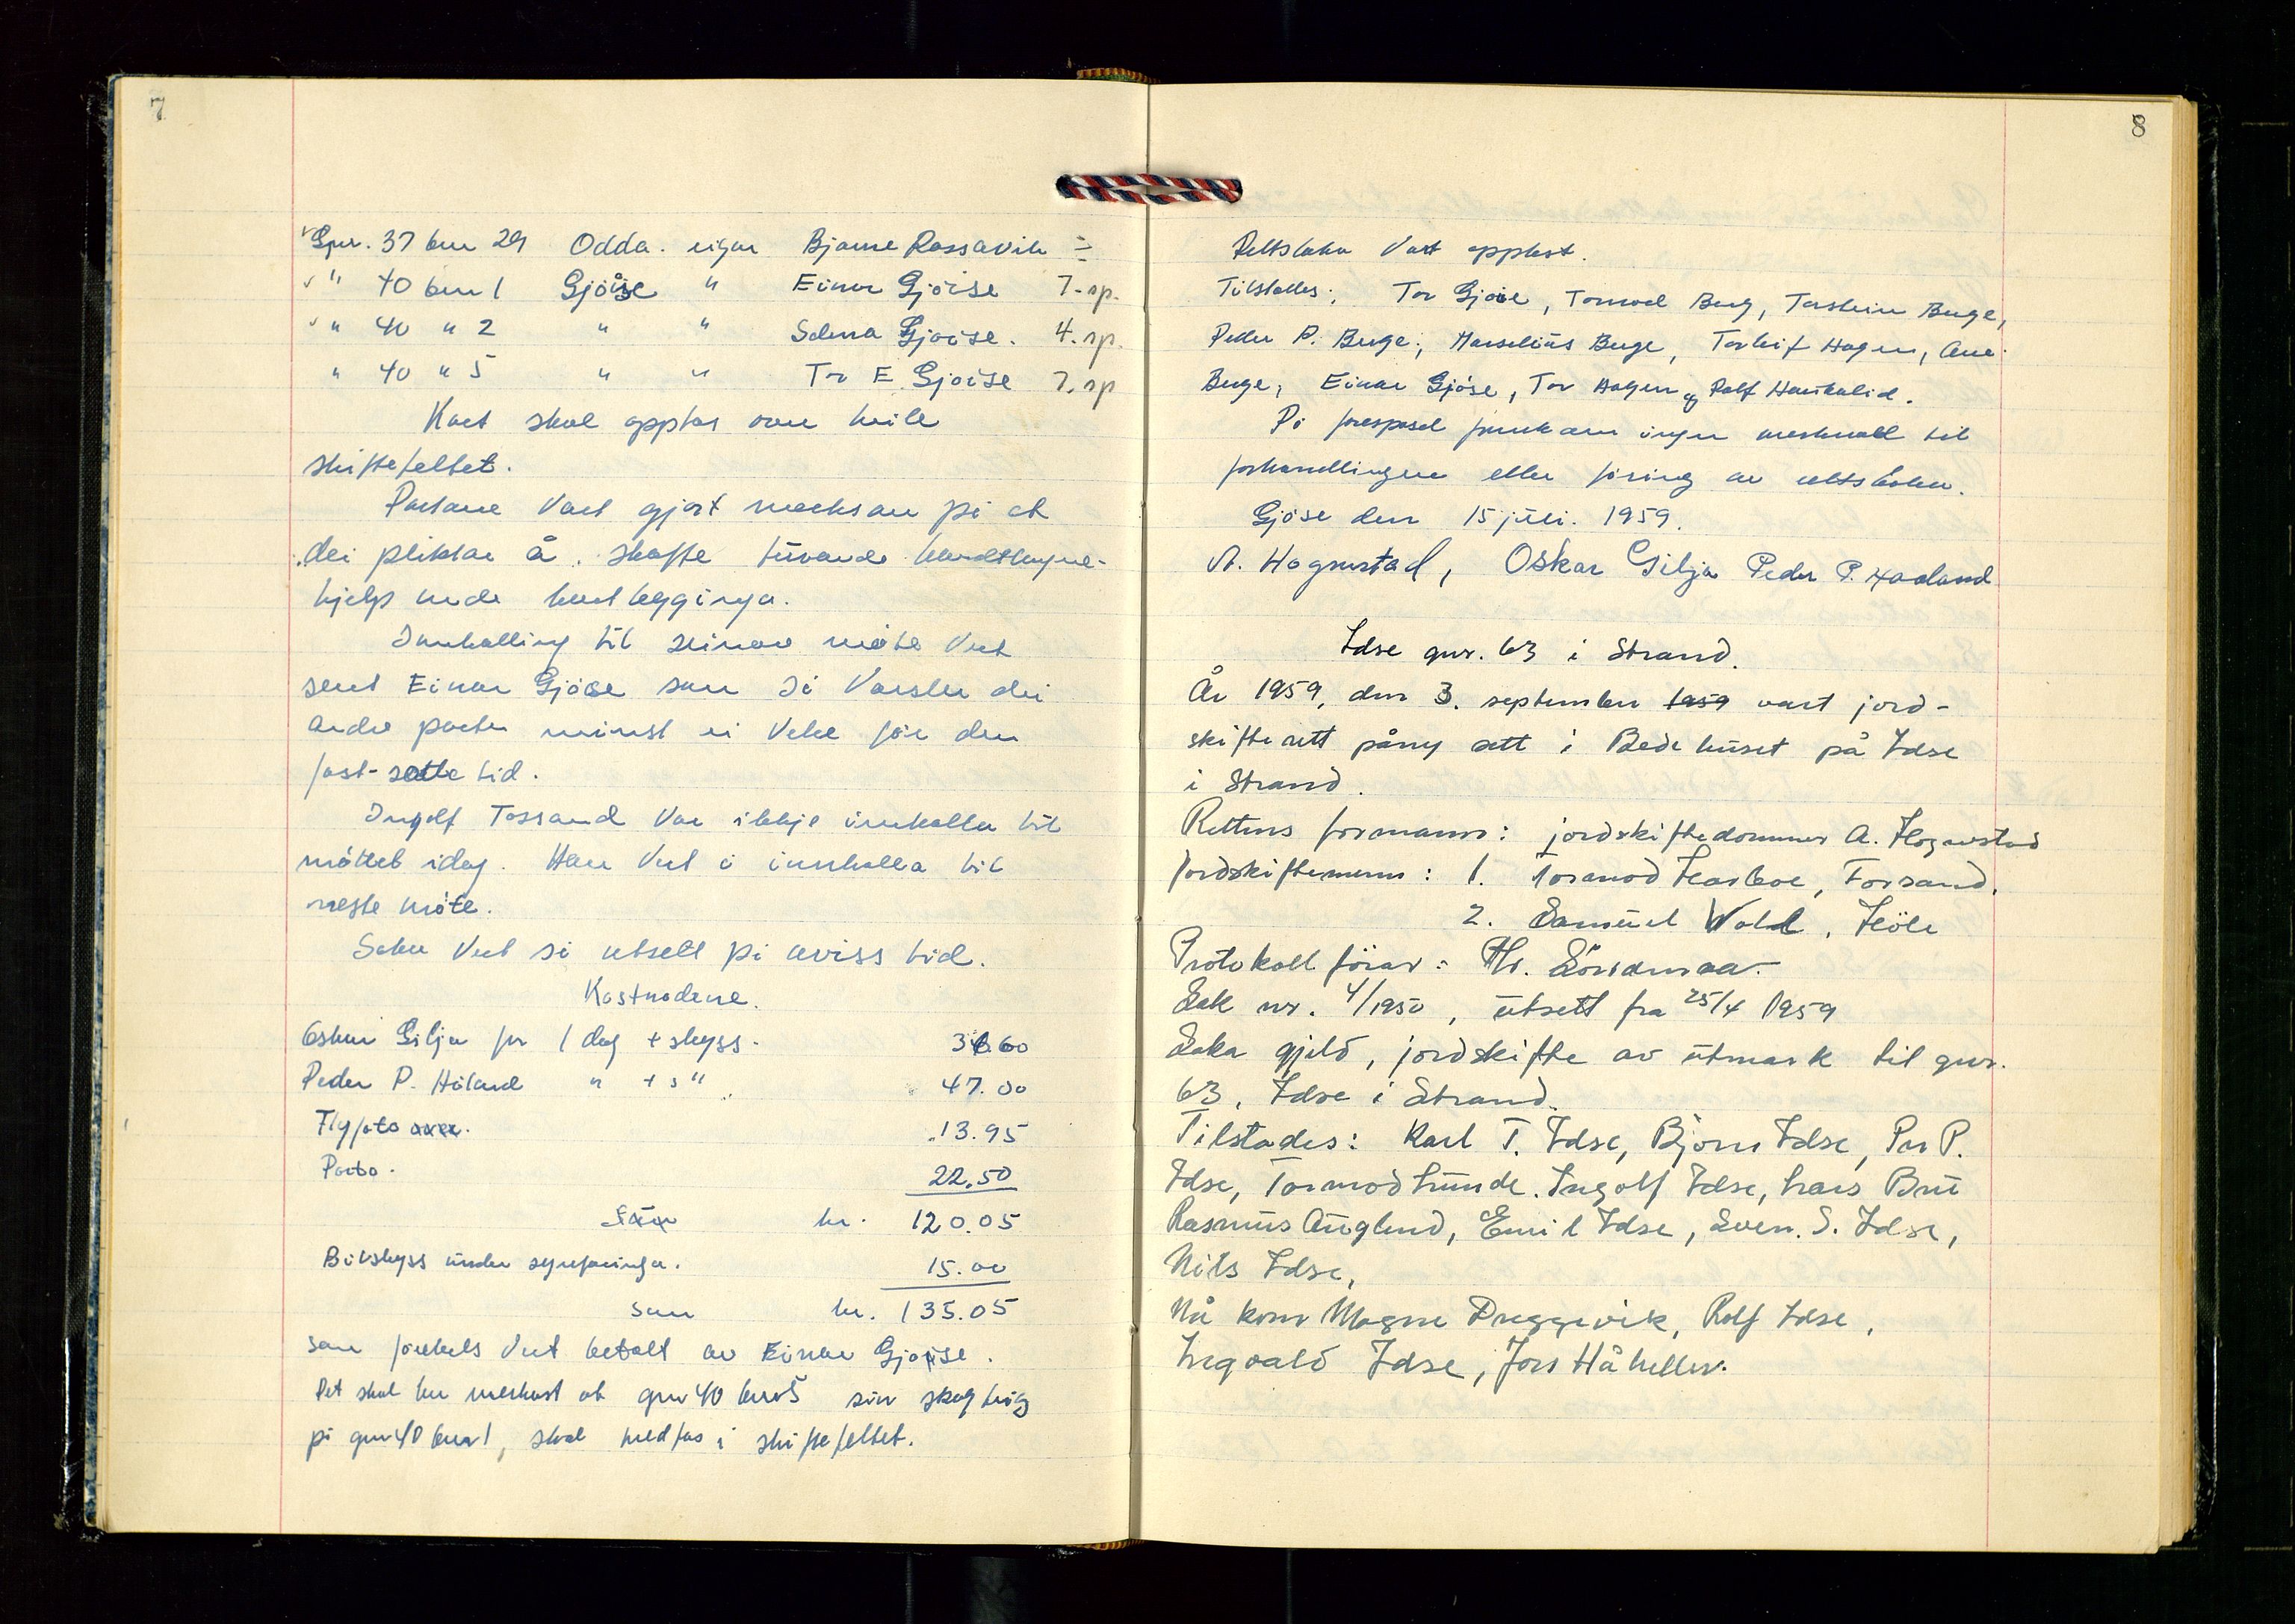 7
Gnr. 37 bnr 29 Odda. eigar Bjarne Rossavik =
" 40 bnr 1 Gjöise " Einar Gjöise 7. sp.
" 40 " 2 " " Selma Gjöise. 4. sp.
" 40 " 5 " " Tor E. Gjöise 7. sp
Kart skal opptas over heile
skiftefeltet.
Partane vart gjort merksam på at
dei pliktar å skaffe turvande handtlangar-
hjelp under kartlegginga.
Innkalling til seinare möte vert
sent Einar Gjöise som så varsler dei
andre parter minst ei veke för den
fast-sette tid.
Ingolf Tossand var ikkje innkalla til
möttet idag. Han vert å innkalla til
neste möte.
Saka vert så utsett på uviss tid.
Kostnadene.
Oskar Gilja for 1 dag + skyss. 36.60
Peder P. Håland " + s " 47.00
Flyfoto 13.95
Porto. 22.50
Sum kr. 120.05
Bilskyss under synfaringa. 15.00
sum kr. 135.05
som forskots vert betalt av Einar Gjöise.
Det skal her merkast at gnr 40 bnr 5 sin skogteig
på gnr 40 bnr 1, skal medtas i skiftefeltet.
8
Rettsboka vart opplest.
Tilstades; Tor Gjöse, Tormod Berg, Torstein Berge,
Peder P. Berge, Marselius Berge, Torleif Hagen, Arne
Berge, Einar Gjöse, Tor Hagen og Rolf Haukalid.
På forespursel framkom ingen merknad til
forhandlingene eller föring av rettsboka.
Gjöse den 15 juli. 1959.
A. Hognestad, Oskar Gilja Peder P. Haaland
Idse gnr. 63 i Strand.
År 1959, den 3. september 1959 vart jord-
skifterett påny sett i Bedehuset på Idse
i Strand.
Rettens formann: jordskiftedommer A. Hognestad
Jordskiftemenn: 1. Tormod Haaboe, Forsand.
2. Samuel Wold, Höle
Protokollförar: Hr. Sörsdmaa.
Sak nr. 4/1950, utsett fra 25/4 1959
Saka gjeld, jordskifte av utmark til gnr.
63, Idse i Strand.
Tilstades: Karl T. Idse, Björn Idse, Per P.
Idse, Tormod Lunde. Ingolf Idse, Lars Bru
Rasmus Auglend, Emil Idse, Sven. S. Idse,
Nils Idse,
Nå kom Magne Preggevik, Rolf Idse,
Ingvald Idse, Jon Håheller.